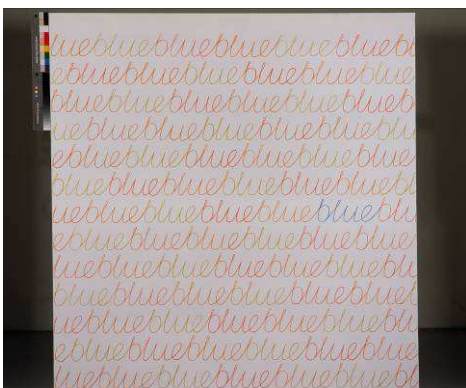 luebluebluebluebluebluebl
eblueblueblueblueblueblue
blueblueblueblueblueblueb
ueblueblueblueblueblueblu
eblueblueblueblueblueblue
blueblueblueblueblueblueb
lueblueblueblueblueblueblu
eblueblueblueblueblueblue
lueblueblueblueblueblueblu
blueblueblueblueblueblueb
lueblueblueblueblueblueblu
eblueblueblueblueblueblue
lueblueblueblueblueblueblu